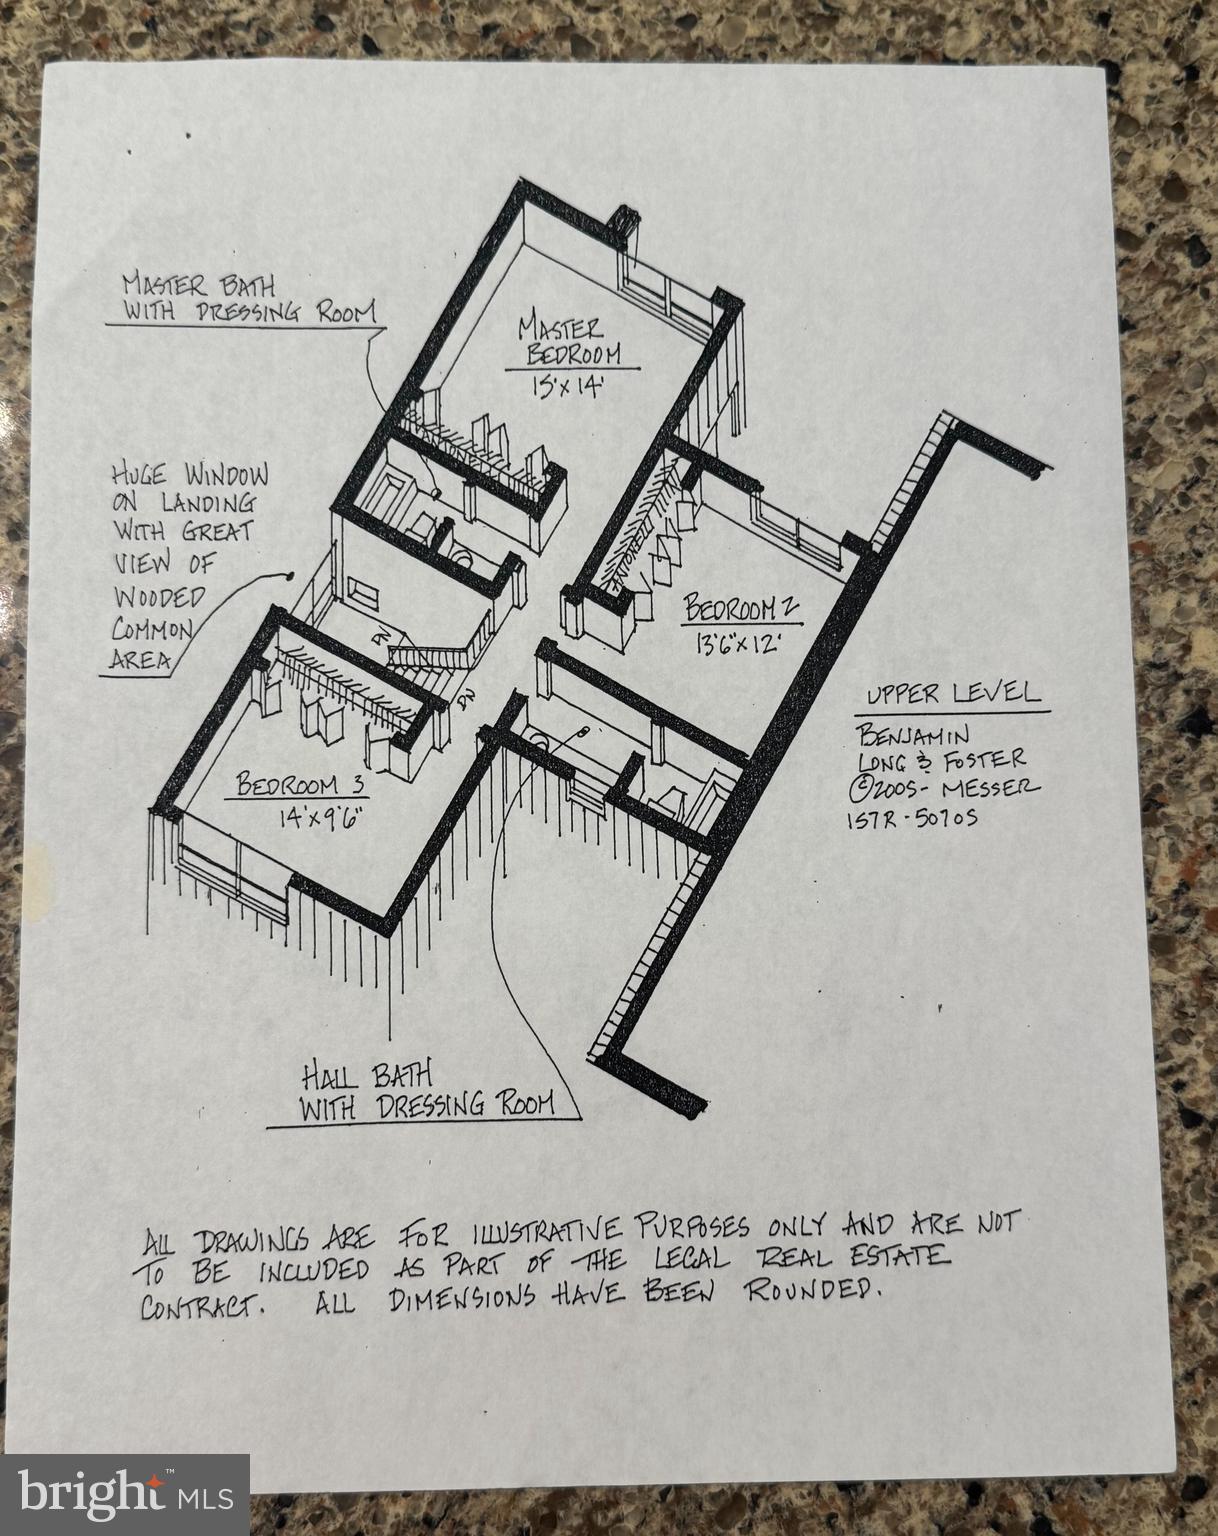 MASTER BATH
WITH DRESSING ROOM
MASTER
BEDROOM
15'x14'
HUGE WINDOW
ON LANDING
WITH GREAT
VIEW OF
WOODED
COMMON
AREA
DN
DN
BEDROOM 2
13'6"x12'
BEDROOM 3
14'x9'6"
UPPER LEVEL
BENJAMIN
LONG & FOSTER
©2005- MESSER
157R-50705
HALL BATH
WITH DRESSING ROOM
ALL DRAWINGS ARE FOR ILLUSTRATIVE PURPOSES ONLY AND ARE NOT
TO BE INCLUDED AS PART OF THE LEGAL REAL ESTATE
CONTRACT. ALL DIMENSIONS HAVE BEEN ROUNDED.
bright™ MLS